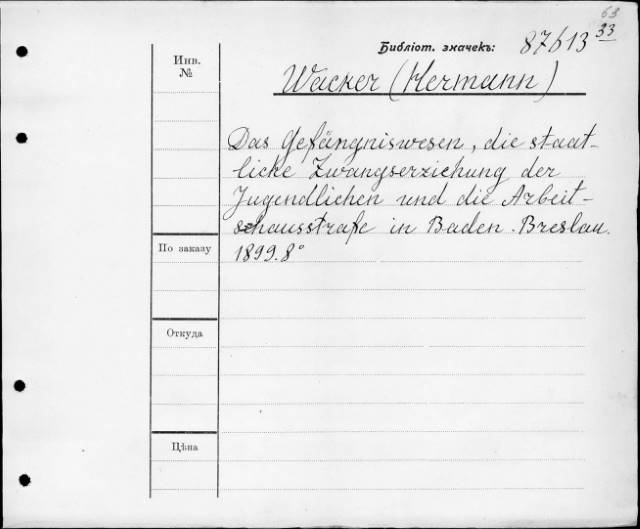 63
33
Библіот. значекъ: 87613
Инв.
№
Wacker (Hermann)
Das Gefängniswesen, die staat-
liche Zwangserziehung der
Jugendlichen und die Arbeit-
schausstrafe in Baden. Breslau.
По заказу
1899. 8°
Откуда
Цѣна